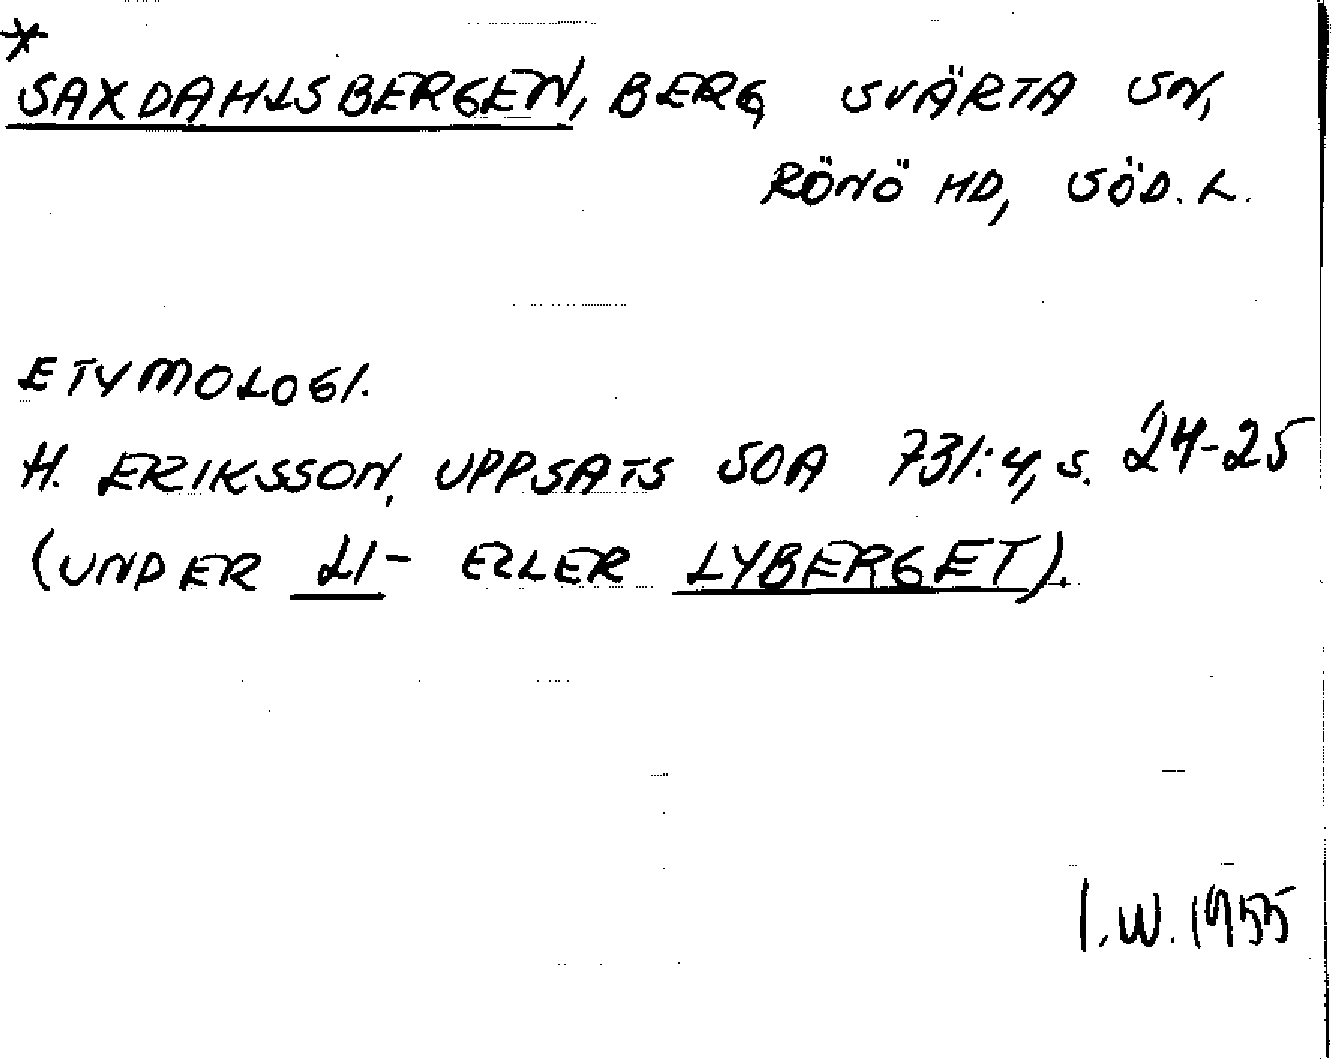 *
SAXDAHLSBERGEN, BERG, SVÄRTA SN,
RÖNÖ HD, SÖD. L.
ETYMOLOGI.
H. ERIKSSON, UPPSATS SOA 731:4, S. 24-25
(UNDER LI- ELLER LYBERGET).
I.W. 1955